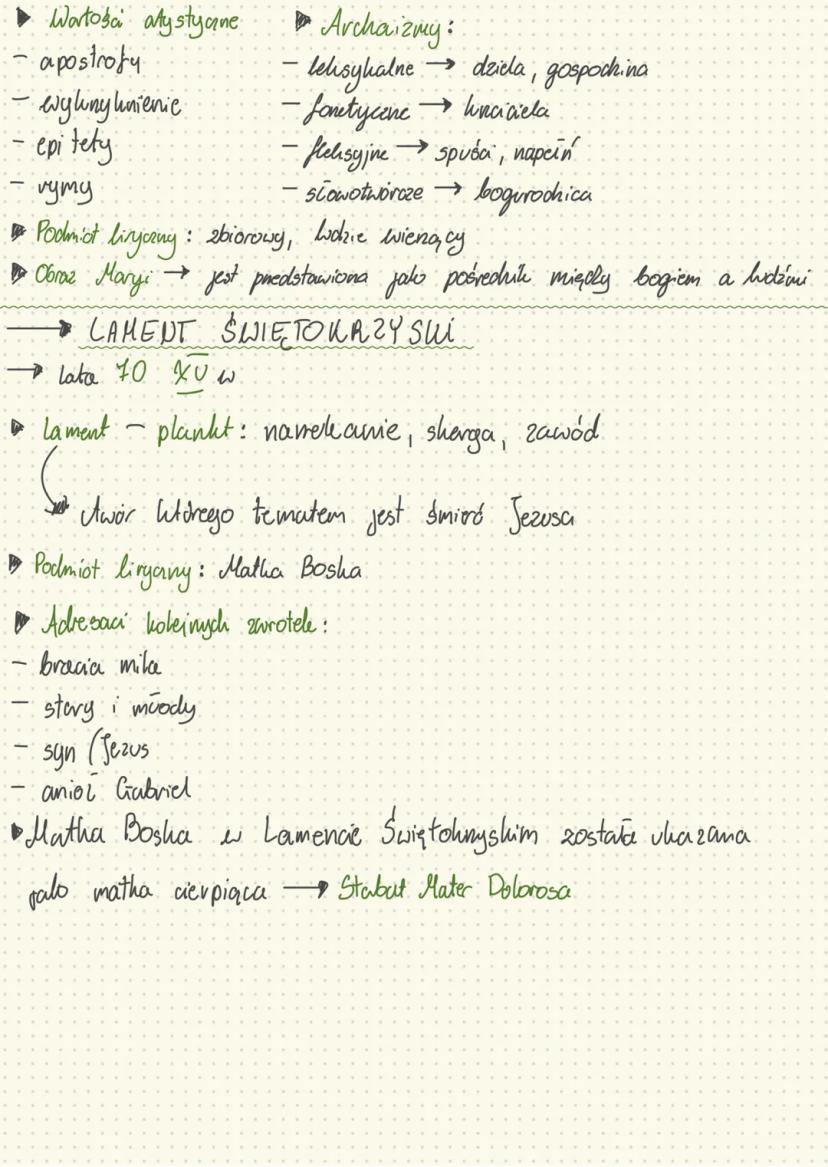 Wartości atystyczne
- apostrofy
- wykrzyknienie
- epitety
- rymy
Archaizmy:
- leksykalne → dziela, gospodzina
- fonetyczne → krzciciela
- fleksyjne → spuści, napełń
- słowotwórcze → bogurodzica
Podmiot liryczny: zbiorowy, ludzie wierzący
Obraz Maryi → jest przedstawiona jako pośrednik między bogiem a ludźmi
→ LAMENT ŚWIĘTOKRZYSKI
→ lata 70 XV w
Lament - plankt: narzekanie, skarga, zawód
Utwór którego tematem jest śmierć Jezusa
Podmiot liryczny: Matka Boska
Adresaci kolejnych zwrotek:
- bracia mila
- stary i młody
- syn (Jezus
- anioł Gabriel
Matka Boska w Lamencie Świętokrzyskim została ukazana
jako matka cierpiąca → Stabat Mater Dolorosa